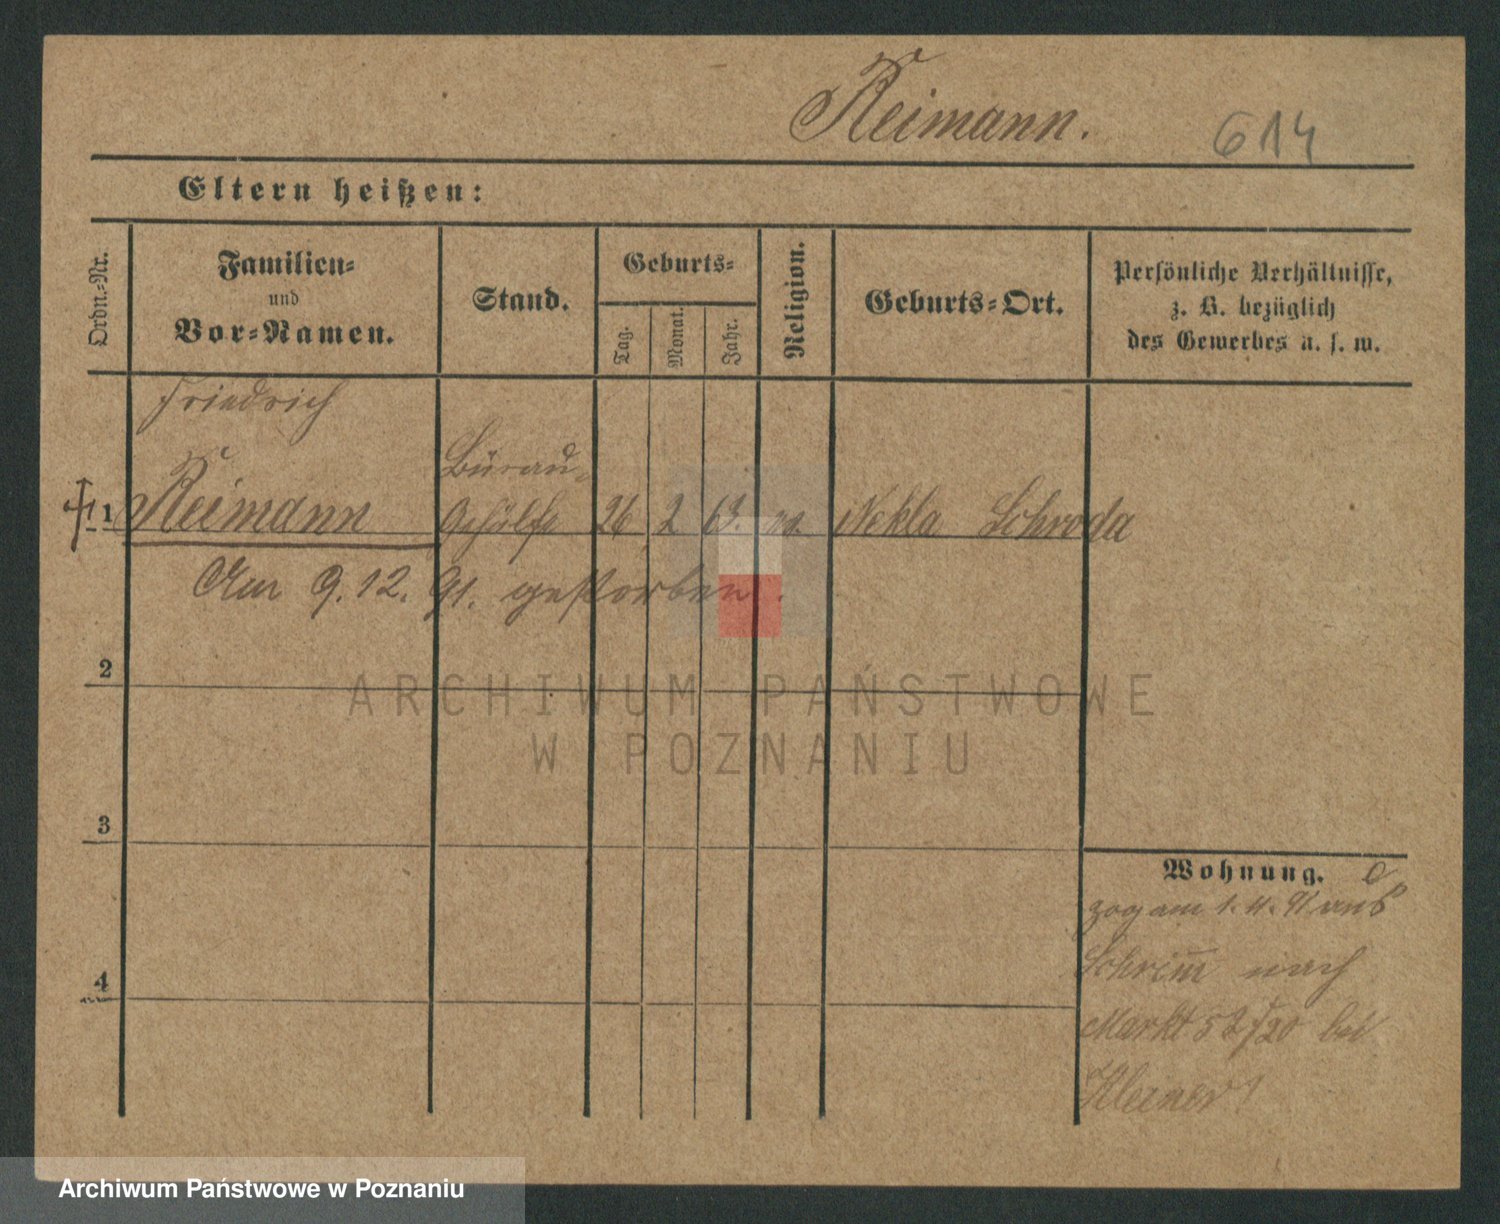 Reimann. 614
Eltern heißen:
Ordn.-Nr.
Familien-
und
Vor-Namen.
Stand.
Geburts-
Tag.
Monat.
Jahr.
Religion.
Geburts-Ort.
Persönliche Verhältnisse,
z. B. bezüglich
des Gewerbes u. s. w.
Friedrich
Bürau-
1 Reimann Gehülfe 26 2 63. Nekla Schroda
Am 9. 12. 91. gestorben.
2
ARCHIWUM PAŃSTWOWE
W POZNANIU
3
4
Wohnung.
zog am 1. 4. 91 aus
Schrim nach
Markt 52/20 bei
Archiwum Państwowe w Poznaniu